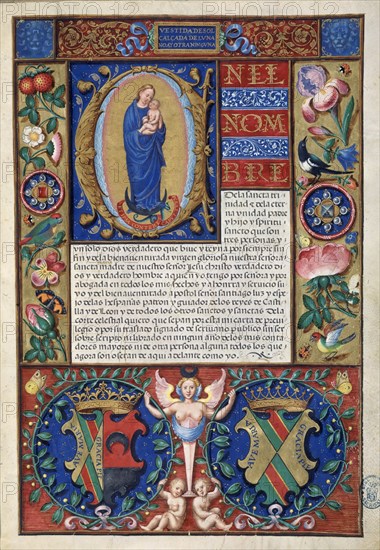 VESTIDA DE SOL
CALÇADA DE LUNA
OTRA NINGVNA
NEL
NOM
BRE
Dela sancta tri
nidad y dela eter
na vnidad padre
y hijo y spiritu
sancto que son
tres personas y
vn solo dios verdadero que biue y reyna por siempre sin
fin y dela bienauenturada virgen gloriosa nuestra señora
sancta madre de nuestro señor Jesu christo verdadero di
os y verdadero hombre a quien yo tengo por señora y por
abogada en todos los mis hechos y a honrra y seruicio su
yo y del bienauenturado apostol señor santiago luz y espe
jo delas hespañas patron y guiador delos reyes de Casti
lla y de Leon y de todos los otros sanctos y sanctas dela
corte celestial quiero que sepan por esta mi carta de preui
legio o por su traslado signado de scriuano publico sin ser
sobre scripto ni librado en ningun año delos mis conta
dores mayores ni de otra persona alguna todos los que
agora son o seran de aqui adelante como yo.
AVE MARIA
GRATIA PLE
AVE MARIA
GRATIA PLE